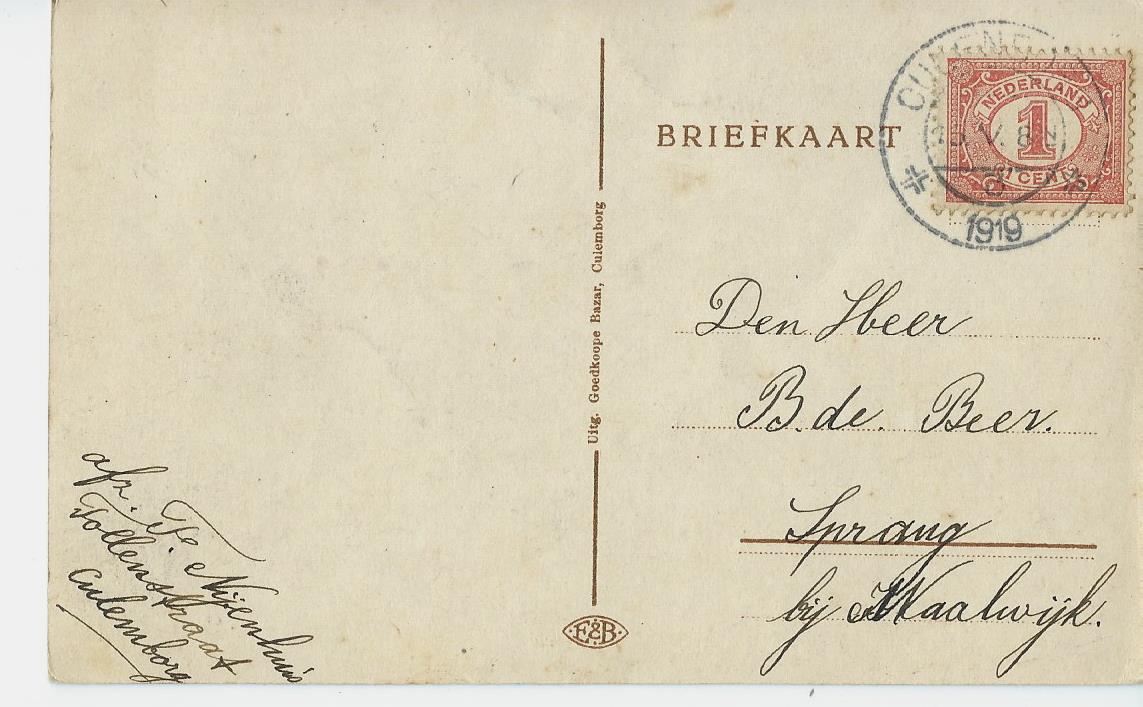 BRIEFKAART
NEDERLAND
1
1 CENT
V. 8
1919
Uitg. Goedkoope Bazar, Culemborg
Den Heer
B. de. Beer.
Sprang
bij Waalwijk.
afz. Te Nijenhuis
Tollenstraat
Culemborg
E&B